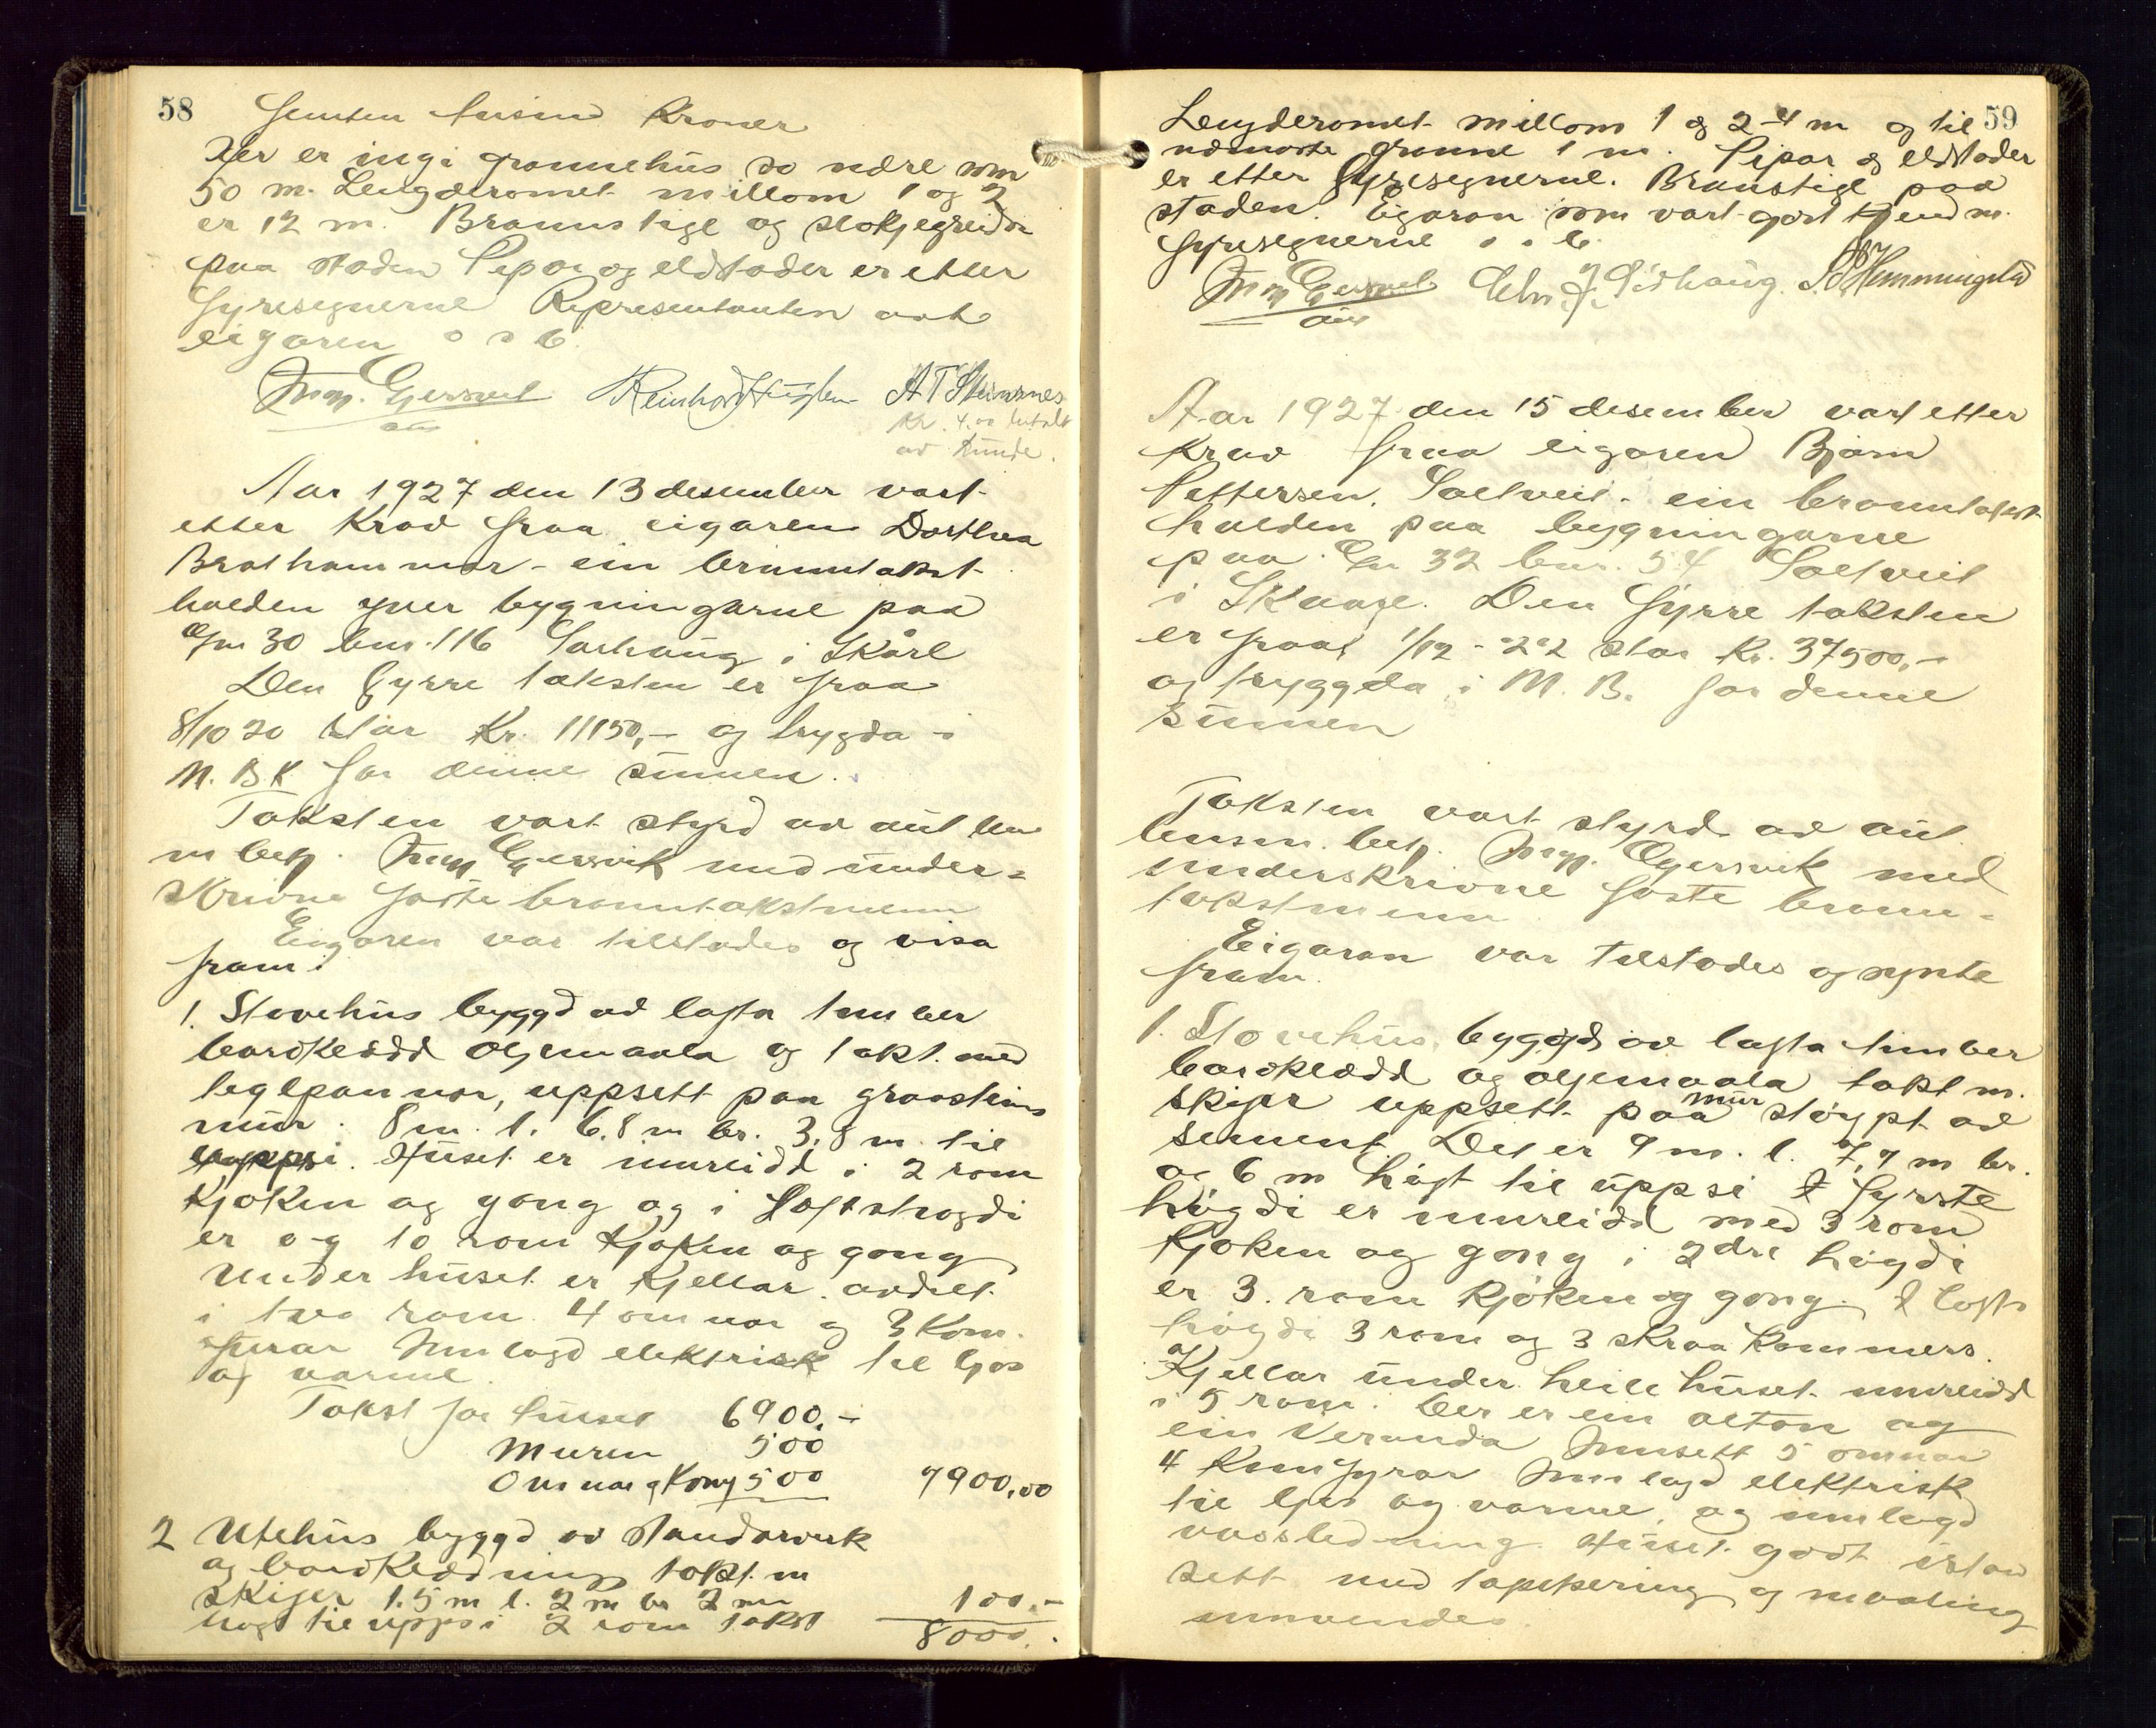 58
Femten tusind Kroner
Der er ingi grannehus so nære som
50 m. Lengderomet millom 1 og 2
er 12 m. Brannstige og slokjegreidur
paa staden Pipor og eldstader er etter
fyresegnerne Representanten avt
eigaren o s b.
Mag. Gjersvik
aut
AT Stensnes
Kr. 4.00 betalt
av Kunde.
Aar 1927 den 13 desember vart
etter Krav fraa eigaren Dorthea
Brathammer - ein branntakst
halden yver bygningarne paa
Gn 30 bnr. 116 Sorhaug i Skåre
Den fyrre taksten er fraa
8/10 20 stor Kr. 11150,- og trygda i
N. B. K for denne sumen.
Taksten vart styrd av aut len
m betj. Mag Gjersvik med under-
skrivne faste branntakstmenn
Eigaren var tilstades og visa
fram:
1. Stovehus byggd av lafta timber
bordkledd oljemaala og takt. med
teglpannor, uppsett paa graasteins
mur. 8 m. l. 6.8 m br. 3.8 m. til
uppsi. Huset er innreidd i 2 rom
Kjøken og gong og i Loftshøgdi
er og to rom Kjøken og gong
Under huset er Kjellar avdelt
i two rom 4 omnar og 3 Kom-
fyrar Innlagd elektrisk til ljos
og varme.
Takst for huset 6900,-
Muren 500
Omnar og Komf 500 7900,00
2 Utehus byggd av standarverk
og bordkledding takt. m
skifer 1.5 m l. 2 m br 2 m
høgt til uppsi 2 rom takst 100,-
8000,-
59
Lengderomet millom 1 og 2 - 4 m og til
nærmaste granne 1 m. Pipor og eldstader
er etter fyresegnerne. Brannstige paa
staden. Eigaren som vart gjort kjend m.
fyresegnerne o. s. b.
Mag Gjersvik
aut
Aar 1927 den 15 desember vart etter
Krav fraa eigaren Bjarn
Pettersen. Saltveit - ein branntakst
halden paa bygningarne
paa Gn 32 bnr. 54 Saltveit
i Skaare. Den fyrre taksten
er fraa 1/12 - 22 stor Kr. 37500,-
og tryggda i N. B. for denne
sumen
Taksten vart styrd av aut
lensm. betj. Mag. Gjersvik med
underskrivne faste brann-
takstmenn
Eigaren var tilstades og synte
fram
1. Stovehus, byggd av lafta timber
bordkledd og oljemaala takt m.
skifer uppsett paa mur støypt av
sement. Det er 9 m. l. 7,7 m br.
og 6 m høgt til uppsi I fyrste
høgdi er innreidd med 3 rom
Kjøken og gong i 2dre høgdi
er 3. rom Kjøken og gong. I lofts
høgdi 3 rom og 3 skraa Kammers.
og
Kjellar under heile huset innreidd
i 5 rom. Der er ein altan og
ein Veranda Innsett 5 omnar
4 Komfyrar Innlagd elektrisk
til ljos og varme, og innlagd
vassledning. Huset godt istand
sett med tapetsering og maaling
innvendes.